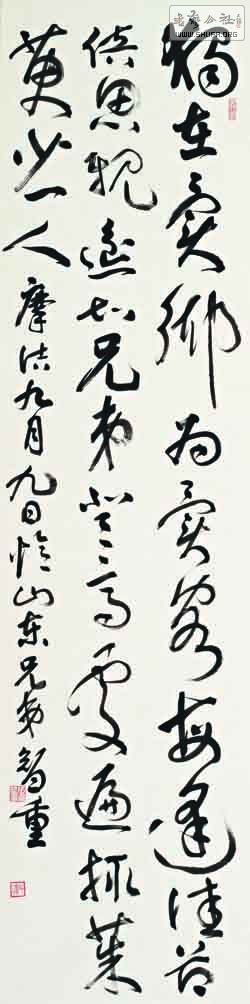 獨在異鄉為異客每逢佳節
倍思親遙知兄弟登高處遍插茱
萸少一人
摩詰九月九日憶山東兄弟智重